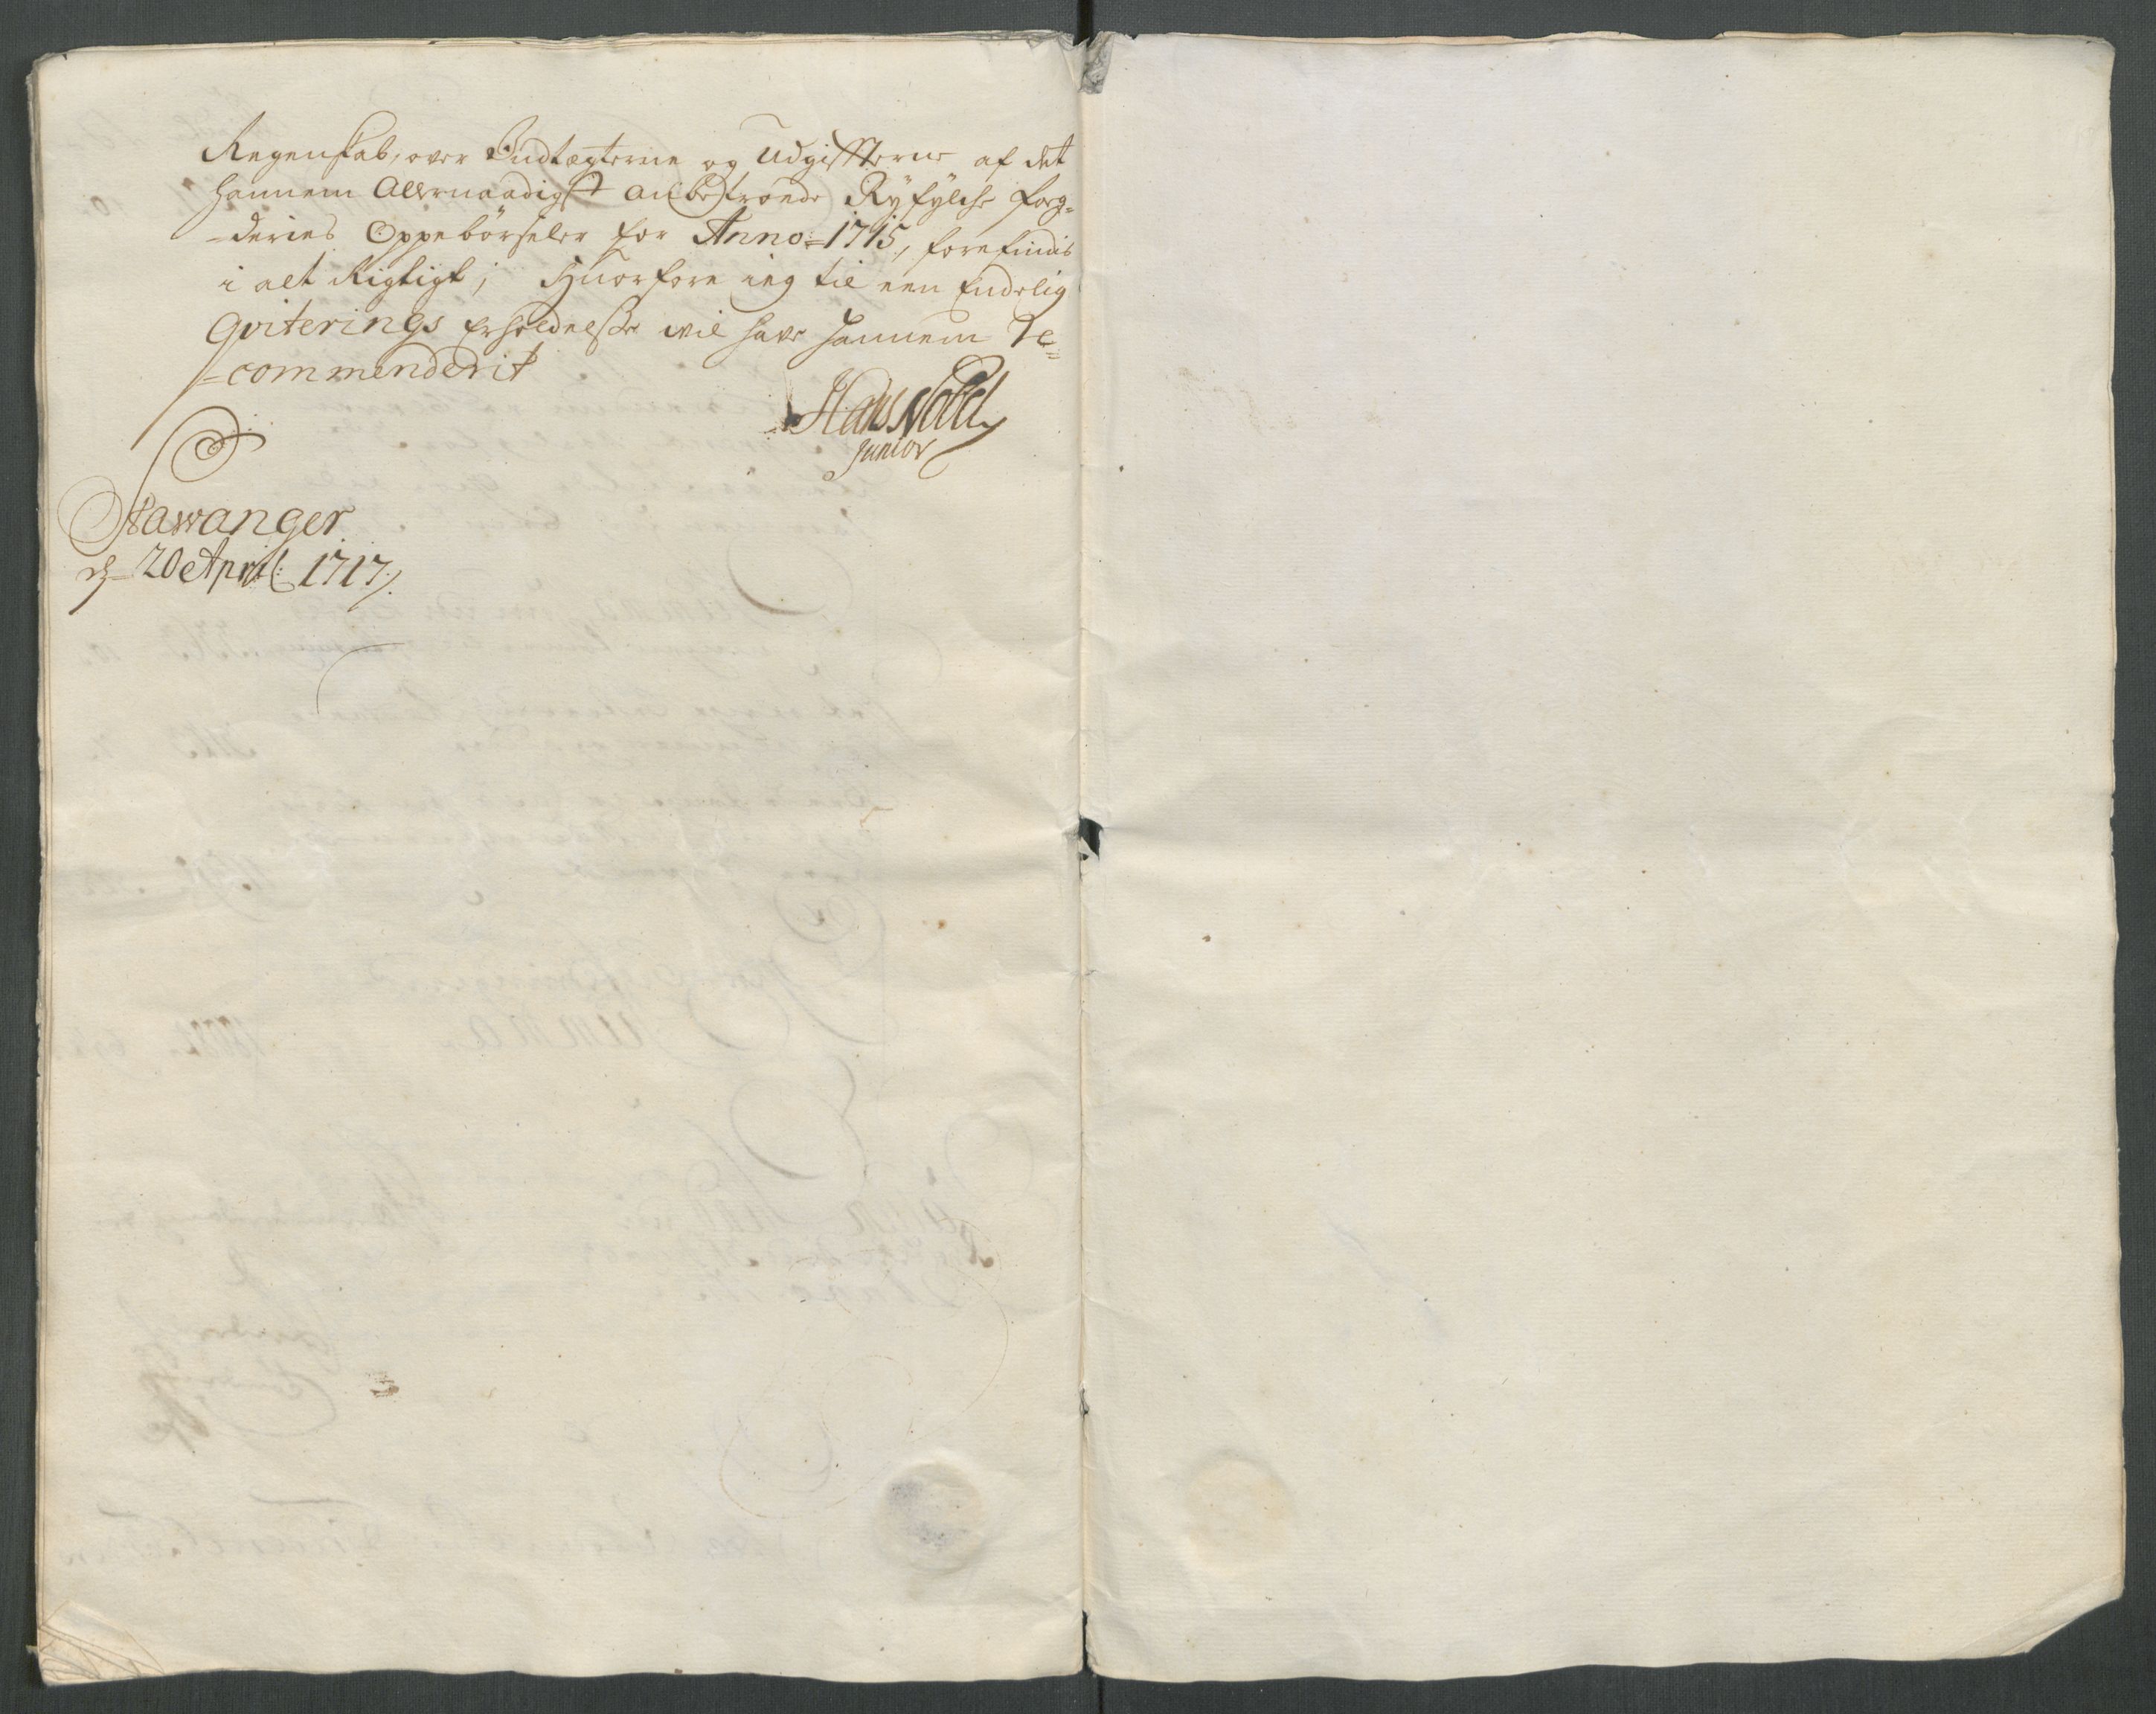 Regenskab, over Indtægterne og Udgiffterne af det
hannem Allernaadigst anbetroede Ryfylche Fog-
=deries Oppebörseler for Anno=1715, forefindis
i alt Rigtigt; Huorfore ieg til een Endelig
Qviterings Erholdelsse wil have hannem Re-
=commenderit
Hans Nobel
Junior
Stawanger
d 20 April: 1717.